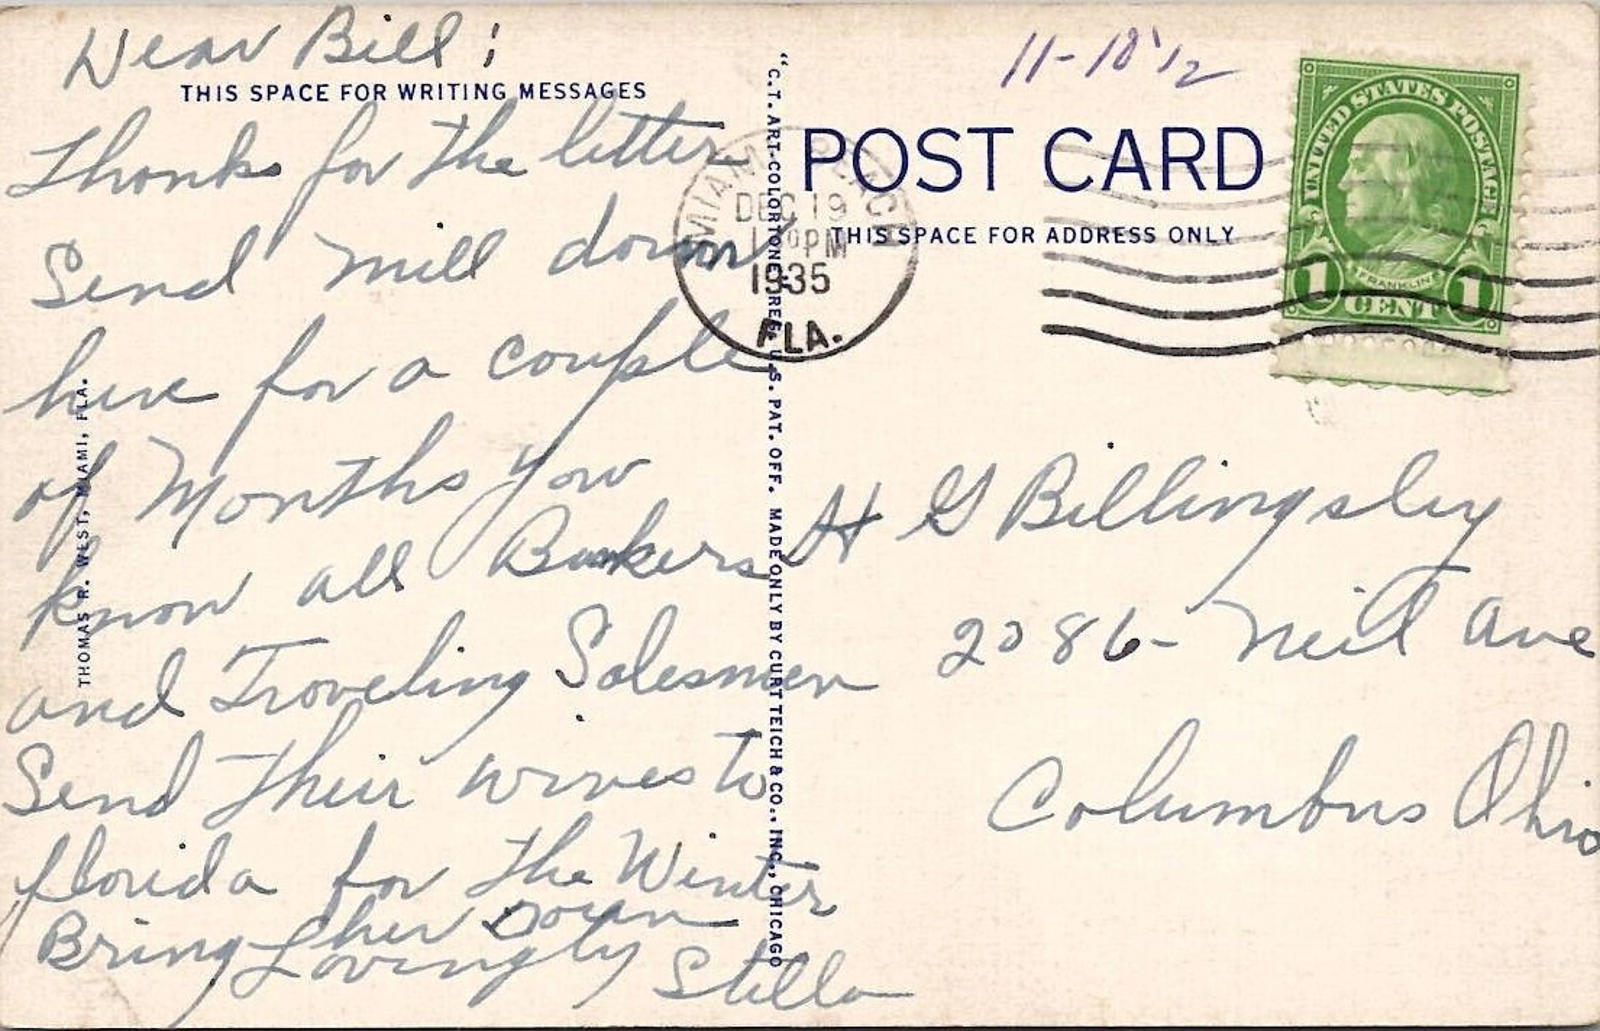 Dear Bill;
THIS SPACE FOR WRITING MESSAGES
Thanks for the letter
Send Mill down
here for a couple
of Months You
know all Bankers
and Traveling Salesmen
Send Their wives to
florida for the Winter
Bring her Down
Lovingly Stella
THOMAS R. WEST, MIAMI, FLA.
"C.T. ART-COLORTONE" REG. U.S. PAT. OFF. MADE ONLY BY CURT TEICH & CO., INC., CHICAGO
11-10 1/2
POST CARD
THIS SPACE FOR ADDRESS ONLY
MIAMI BEACH
DEC 19
PM
1935
FLA.
UNITED STATES POSTAGE
FRANKLIN
1 CENT 1
H G Billingsley
2086- Neil Ave
Columbus Ohio